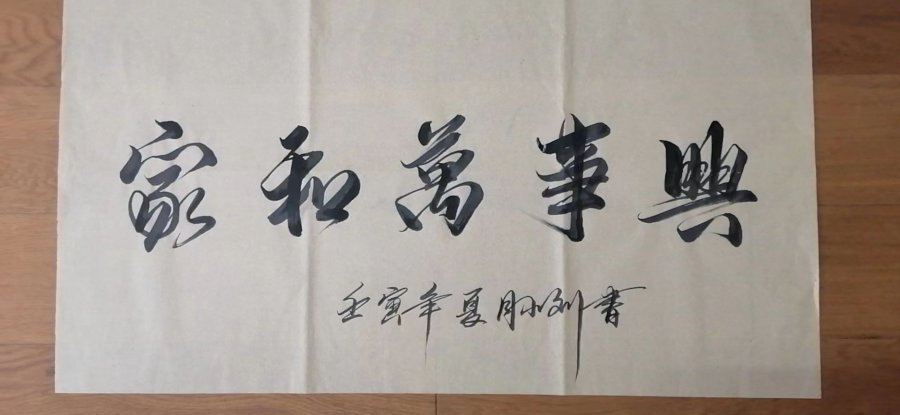 家和萬事興
壬寅年夏月小刘書